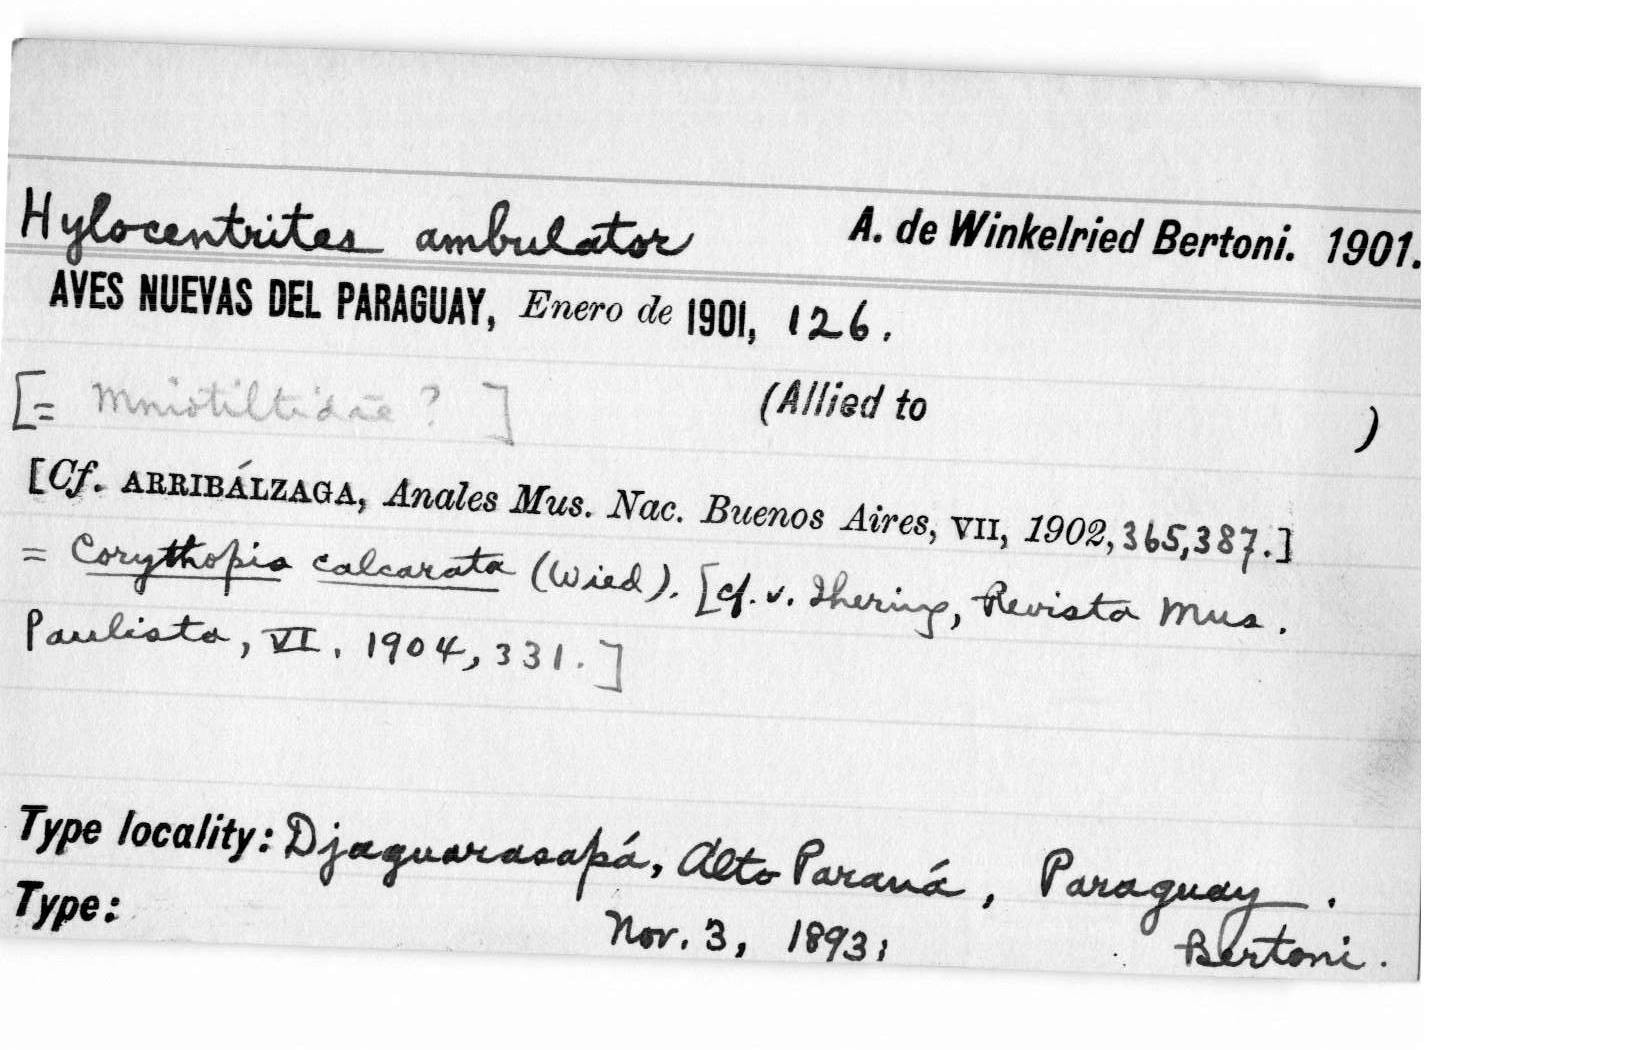 Hylocentrites ambulator A. de Winkelried Bertoni. 1901.
AVES NUEVAS DEL PARAGUAY, Enero de 1901, 126.
[= Mniotiltidae ? ] (Allied to )
[Cf. ARRIBÁLZAGA, Anales Mus. Nac. Buenos Aires, VII, 1902, 365, 387.]
= Corythopis calcarata (Wied). [cf. v. Ihering, Revista Mus.
Paulista, VI, 1904, 331.]
Type locality: Djaguarasapá, Alto Paraná, Paraguay.
Type: Nov. 3, 1893; Bertoni.